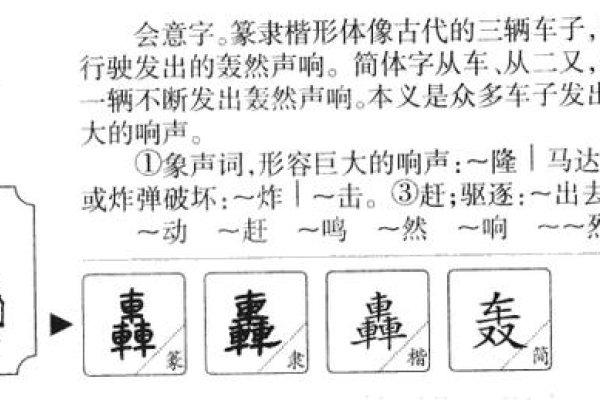 会意字。篆隶楷形体像古代的三辆车子,
行驶发出的轰然声响。简体字从车、从二又,
一辆不断发出轰然声响。本义是众多车子发出
大的响声。
①象声词,形容巨大的响声:～隆｜马达
或炸弹破坏:～炸｜～击。③赶;驱逐:～出去
～动 ～赶 ～鸣 ～然 ～响 ～～烈
轟 轟 轟 轰
篆 隶 楷 简